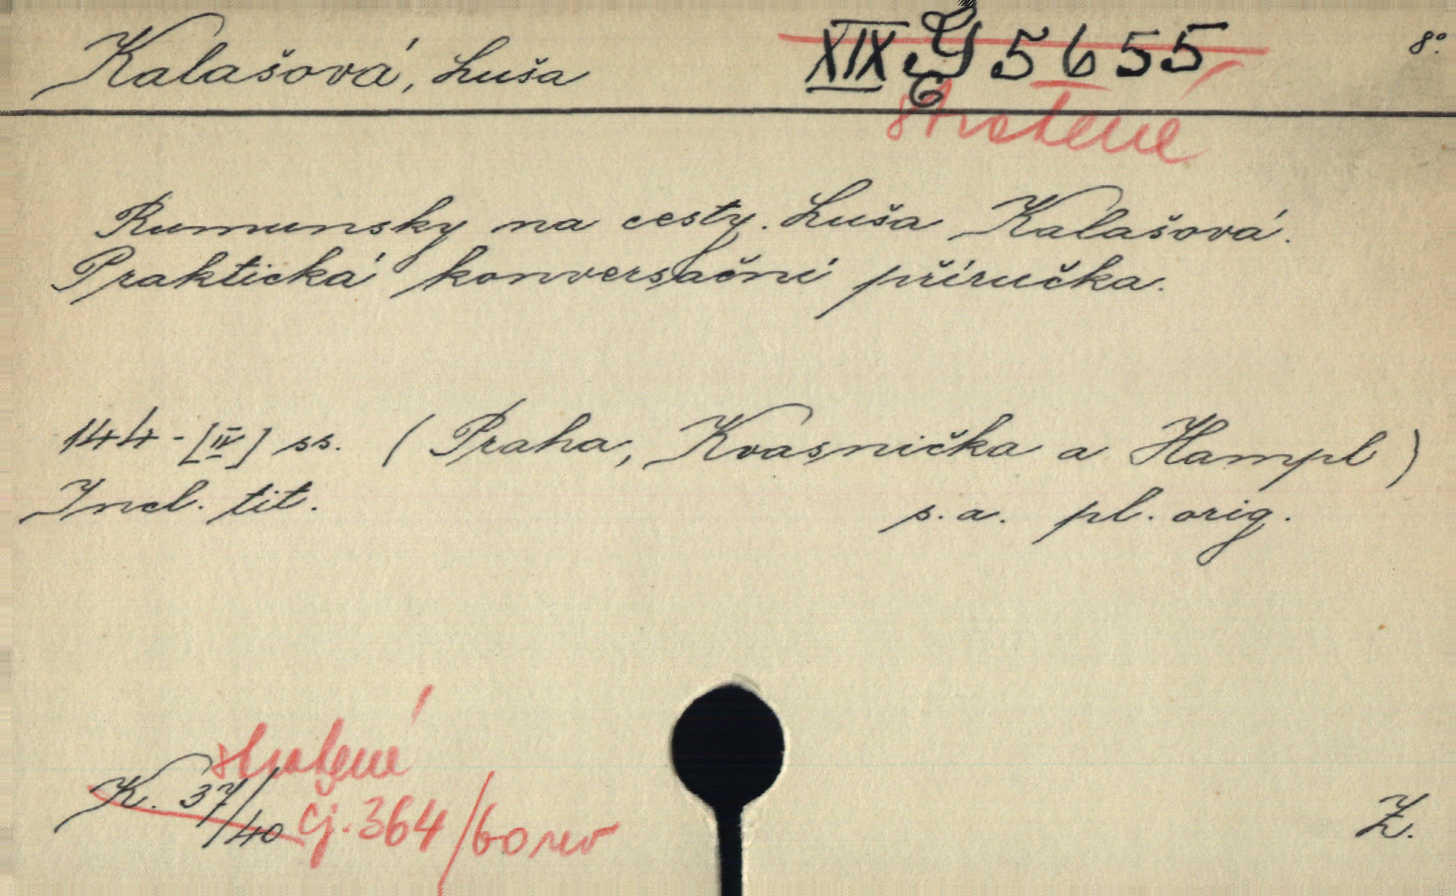 Kalašová, Luša XIX G 5655 8°
stratené
Rumunsky na cesty. Luša Kalašová.
Praktická konversační příručka.
144-[IV] ss. (Praha, Kvasnička a Hampl)
Incl. tit. s.a. pl. orig.
stratené
K. 37/40 čj. 364/60 rev
Z.